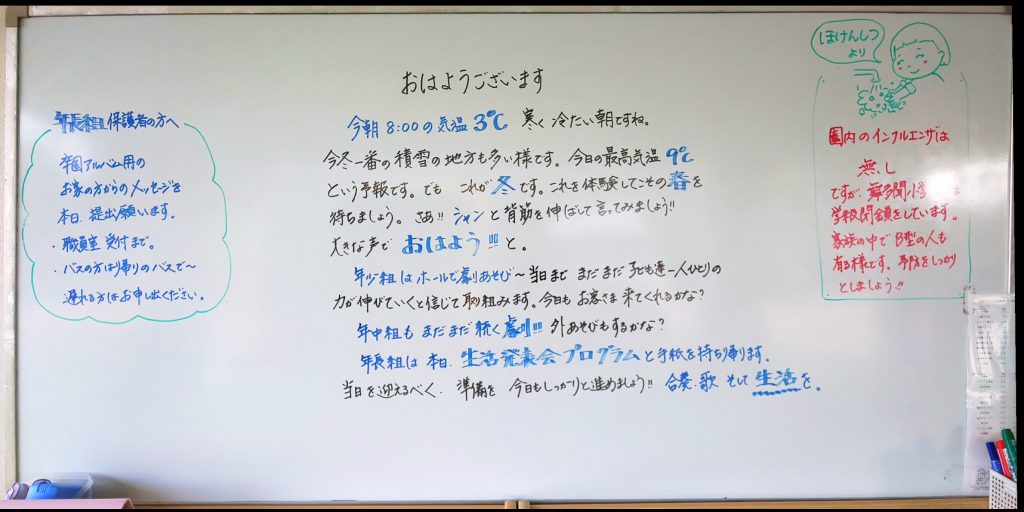 おはようございます
今朝 8:00の気温 3℃ 寒く 冷たい朝ですね。
今冬一番の積雪の地方も多い様です。今日の最高気温 9℃
という予報です。でも これが 冬です。これを体験してこその春を
待ちましょう。さあ!! シャンと背筋を伸ばして言ってみましょう!!
大きな声で おはよう!!! と。
年少組はホールで劇あそび〜当日まで まだまだ子ども達一人ひとりの
力が伸びていくと信じて取り組みます。今日も お客さま来てくれるかな?
年中組も まだまだ続く劇!!! 外あそびもするかな?
年長組は 本日、生活発表会プログラムと手紙を持ち帰ります。
当日を迎えるべく、準備を 今日もしっかりと進めましょう!! 合奏、歌 そして 生活を。
年長組 保護者の方へ
卒園アルバム用の
お家の方からのメッセージを
本日、提出願います。
・職員室 受付まで。
・バスの方は帰りのバスで〜
遅れる方はお申し出ください。
ほけんしつ
より
園内のインフルエンザは
無し
ですが 舞多聞小
学校閉鎖をしています。
家族の中で B型の人も
有る様です。予防をしっかり
としましょう!!